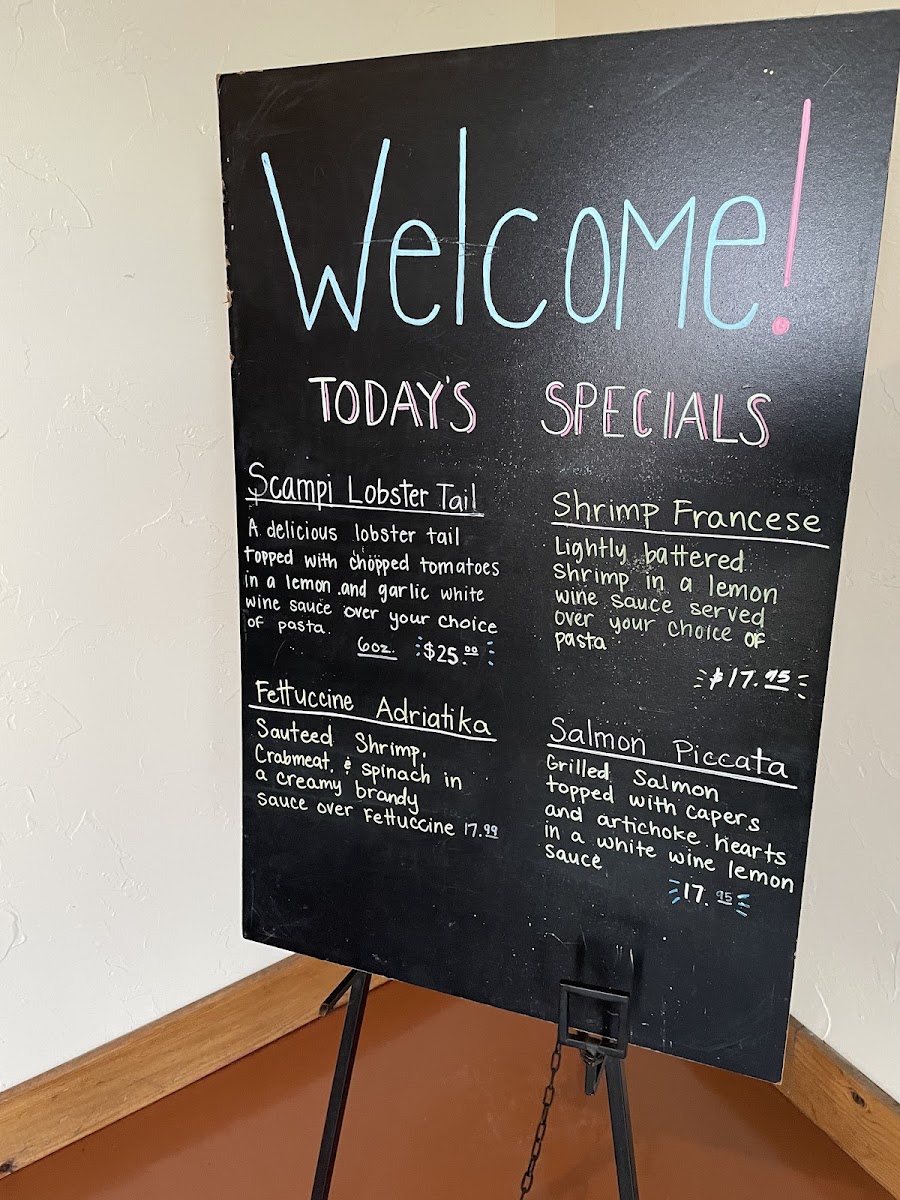 Welcome!
TODAY'S SPECIALS
Scampi Lobster Tail
A delicious lobster tail
topped with chopped tomatoes
in a lemon and garlic white
wine sauce over your choice
of pasta.
6oz. $25.00
Fettuccine Adriatika
Sauteed Shrimp,
Crabmeat, & spinach in
a creamy brandy
sauce over Fettuccine 17.99
Shrimp Francese
Lightly battered
Shrimp in a lemon
wine sauce served
over your choice of
pasta
$17.95
Salmon Piccata
Grilled Salmon
topped with capers
and artichoke hearts
in a white wine lemon
sauce
17.95